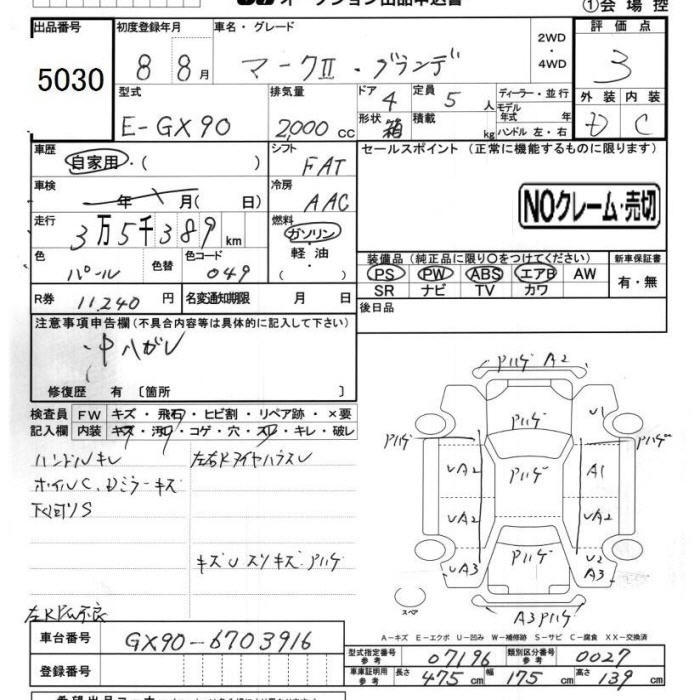 ①会場控
出品番号
5030
初度登録年月
8 8月
車名・グレード
マークⅡ・グランデ
2WD
・
4WD
評価点
3
型式
E-GX90
排気量
2,000 cc
ドア
4
定員
5 人
形状
箱
積載
kg
ディーラー・並行
モデル
年式 年
ハンドル 左・右
外装
D
内装
C
車歴
自家用・( )
シフト
FAT
車検
年 月( 日)
冷房
AAC
走行
3万5千389km
燃料
ガソリン
・
軽油
・
( )
色
パール
色替
色コード
049
R券
11,240 円
名変通知期限 月 日
セールスポイント (正常に機能するものに限ります)
NOクレーム・売切
装備品(純正品に限り○をつけてください)
PS PW ABS エアB AW
SR ナビ TV カワ
新車保証書
有・無
後日品
注意事項申告欄(不具合内容等は具体的に記入して下さい)
中ハガレ
修復歴 有〔箇所 〕
検査員
記入欄
FW キズ・飛石・ヒビ割・リペア跡・×要
内装 キズ・汚れ・コゲ・穴・スレ・キレ・破レ
ハンドルキレ
ホイルC、Dミラーキズ
下回リS
キズUスリキズ、Pハゲ
Pハゲ A2
Pハゲ
U1
Pハゲ
Pハゲ
UA2
Pハゲ
A1
UA2
UA2
UA3
Pハゲ
U2
A3
スペア
A3Pハゲ
A-キズ E-エクボ U-凹み W-補修跡 S-サビ C-腐食 XX-交換済
車台番号
GX90-6703916
型式指定番号
参考
07196
類別区分番号
参考
0027
登録番号
車庫証明用
参考
長さ 475cm 幅 175cm 高さ 139cm